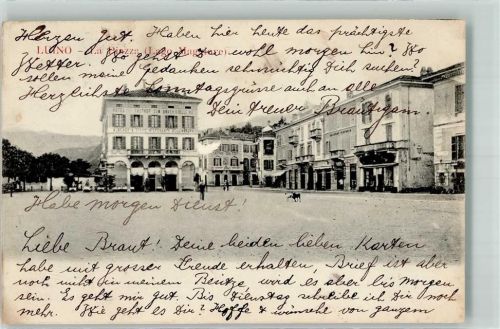 Herzen gut. Haben hier heute das prächtigste
LUINO - La Piazza (Lago Maggiore)
Wetter. Wo gehst Du wohl morgen hin? Wo
sollen meine Gedanken sehnsüchtig Dich suchen?
Herzlichste Sonntagsgrüsse auch an alle
Dein treuer Bräutigam.
Habe morgen Dienst!
Liebe Braut! Deine beiden lieben Karten
habe mit grosser Freude erhalten, Brief ist aber
noch nicht in meinem Besitze, wird es aber bis morgen
sein. Es geht mir gut. Bis Dienstag schreibe ich Dir noch
mehr. Wie geht es Dir? Hoffe & wünsche von ganzem